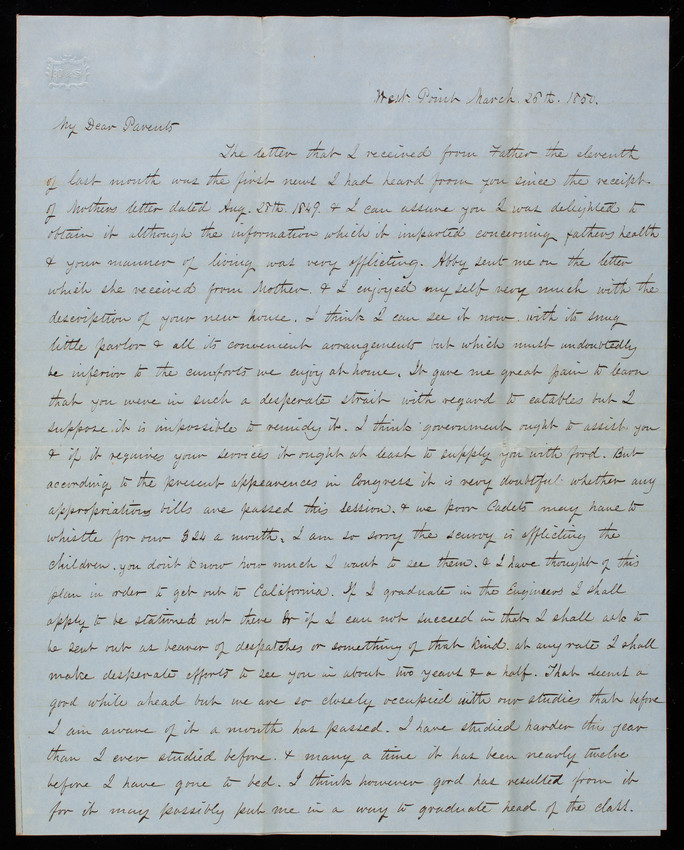 West Point March 25th. 1850.
My Dear Parents
The letter that I received from Father the eleventh
of last month was the first news I had heard from you since the receipt
of Mothers letter dated Aug. 28th. 1849. & I can assure you I was delighted to
obtain it although the information which it imparted concerning fathers health
& your manner of living was very afflicting. Abby sent me on the letter
which she received from Mother. & I enjoyed myself very much with the
description of your new house. I think I can see it now. with its snug
little parlor & all its convenient arrangements but which must undoubtedly
be inferior to the comforts we enjoy at home. It gave me great pain to learn
that you were in such a desperate strait with regard to eatables but I
suppose it is impossible to remidy it. I think government ought to assist you
& if it requires your services it ought at least to supply you with food. But
according to the present appearences in Congress it is very doubtful whether any
appropriation bills are passed this session. & we poor Cadets may have to
whistle for our $24 a month. I am so sorry the scurvy is afflicting the
children. you dont know how much I want to see them. & I have thought of this
plan in order to get out to California. If I graduate in the Engineers I shall
apply to be stationed out there Or if I can not succeed in that I shall ask to
be sent out as bearer of despatches or something of that kind. at any rate I shall
make desperate efforts to see you in about two years & a half. That seems a
good while ahead but we are so closely occupied with our studies that before
I am aware of it a month has passed. I have studied harder this year
than I ever studied before. & many a time it has been nearly twelve
before I have gone to bed. I think however good has resulted from it
for it may possibly put me in a way to graduate head of the class.